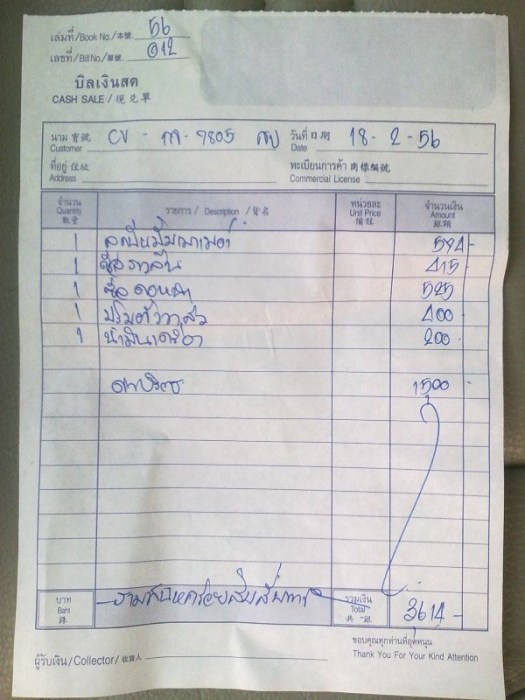 เล่มที่/Book No./本號 56
เลขที่/Bill No./單號 012
บิลเงินสด
CASH SALE / 現兌單
นาม 寶號 CV - 9805 วันที่ 日期 18-2-56
Customer Date
ที่อยู่ 住址 ทะเบียนการค้า 商標編號
Address Commercial License
จำนวน รายการ / Description / 貨名 หน่วยละ จำนวนเงิน
Quantity Unit Price Amount
數量 價值 銀碼
1 594-
1 415-
1 525
1 400-
1 200-
ค่าบริการ 1500-
บาท สามพันหกร้อยสิบสี่บาท รวมเงิน 3614-
Baht Total
銖 共銀
ขอบคุณทุกท่านที่อุดหนุน
ผู้รับเงิน/Collector/收貨人 Thank You For Your Kind Attention